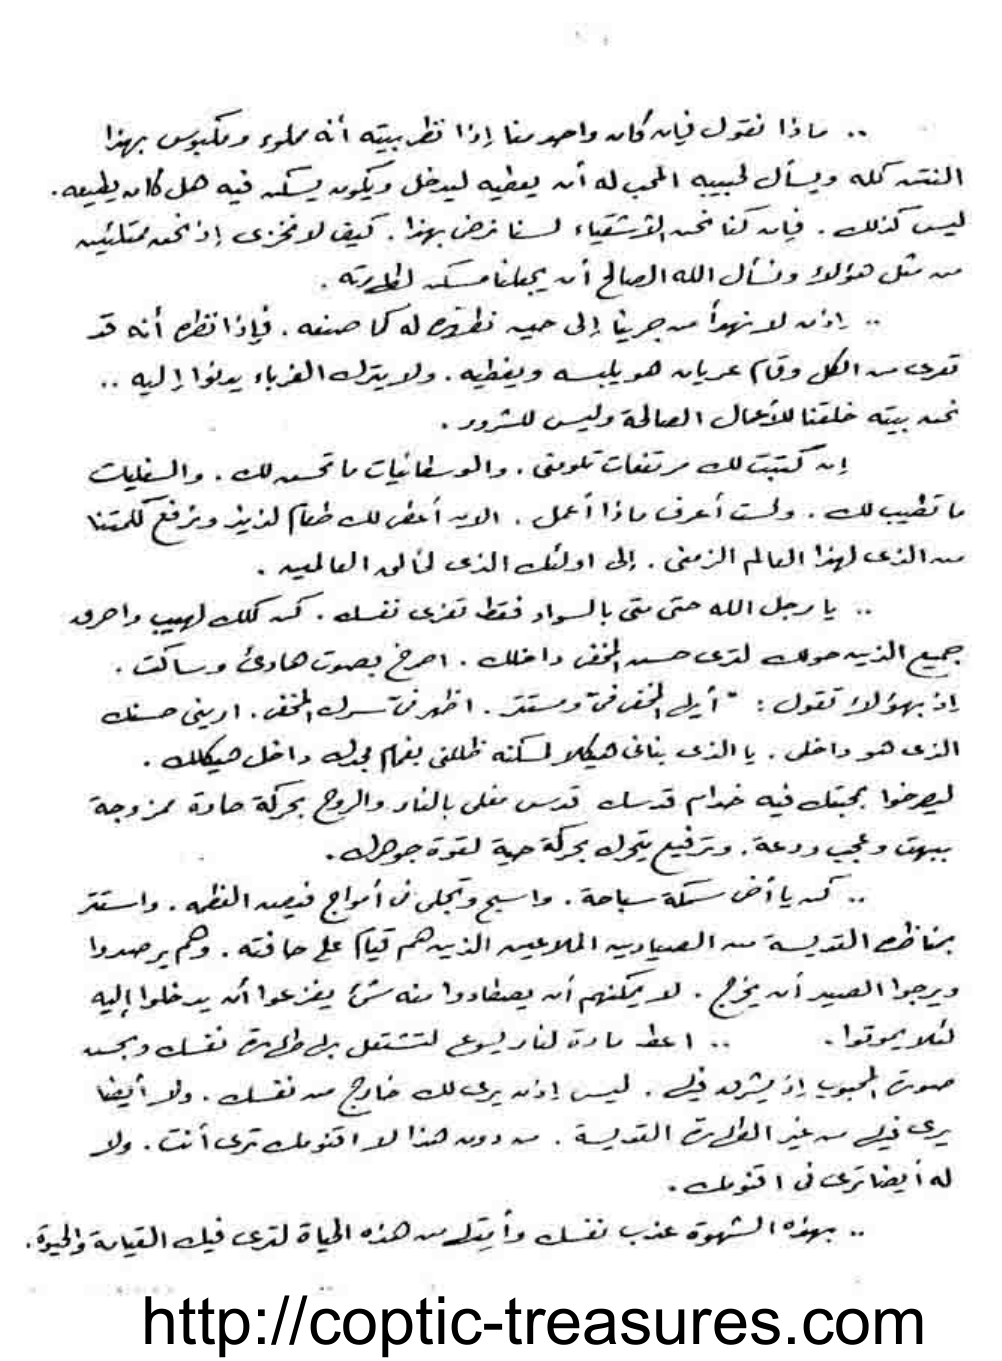 .. ماذا نقول فإن كان واحد منا إذا نظر بيته أنه مملوء ومكبوس بهذا
النتن كله ويسأل لحبيبه المحب له أن يعطيه ليدخل ويكون يسكن فيه هل كان يطيعه .
ليس كذلك . فإن كنا نحن الأشقياء لسنا نرضى بهذا . كيف لا نخزى إذ نحن ممتلئين
من مثل هؤلاء ونسأل الله الصالح أن يجعلنا مسكن لطهارته .
.. إذن لا نهدأ من جرينا إلى حين نظهره له كما صنعه . فإذا نظره أنه قد
تعرى من الكل وقام عريان هو يلبسه ويغطيه . ولا يترك الغرباء يدنوا إليه ..
نحن بيته خلقنا للأعمال الصالحة وليس للشرور .
إن كتبت لك مرتفعات تلومنى . والوسطانيات ما تحسن لك . والسفليات
ما تطيب لك . ولست أعرف ماذا أعمل . الان أعطى لك طعام لذيذ ونرفع كلمتنا
من الذى لهذا العالم الزمنى . إلى اولئك الذى العالمين .
.. يا رجل الله حتى متى بالسواد فقط تعزى نفسك . كن كلك لهيب واحرق
جميع الذين حولك لترى حسن المخفى داخلك . اصرخ بصوت هادئ وساكت .
إذ بهؤلاء تقول : " أيها المخفى فىّ ومستتر . اظهر فىّ سرك المخفى . ارينى حسنك
الذى هو داخلى . يا الذى بنانى هيكلا لسكنه ظللنى بغمام مجدك داخل هيكلك .
ليصرخوا بمحبتك فيه خدام قدسك قدس مغلى بالنار والروح بحركة حادة ممزوجة
ببهت وعجب ودعة . وترفيع يتحرك بحركة حية لقوة جوهرك .
.. كن يا أخى سمكة سباحة . واسبح وتجلى فى أمواج فيض العظمة . واستتر
بمناظره القديسة من الصيادين الملاعين الذين هم قيام على حافته . وهم يرصدوا
ويرجوا الصيد أن يخرج . لا يمكنهم أن يصطادوا منه شئ يفزعوا أن يدخلوا إليه
لئلا يموتوا . .. اعط مادة لنار يسوع لتشتعل بها طهارة نفسك وبحس
صوت المحبوب إذ يشرق فيها . ليس إذن يرى لك خارج من نفسك . ولا أيضا
يرى فيها من غير الطهارة القديسة . من دون هذا لا اقنومك ترى أنت . ولا
له أيضا ترى فى اقنومك .
.. بهذه الشهوة عذب نفسك وأبتدل من هذه الحياة لترى فيك القيامة والحيوة .
http://coptic-treasures.com